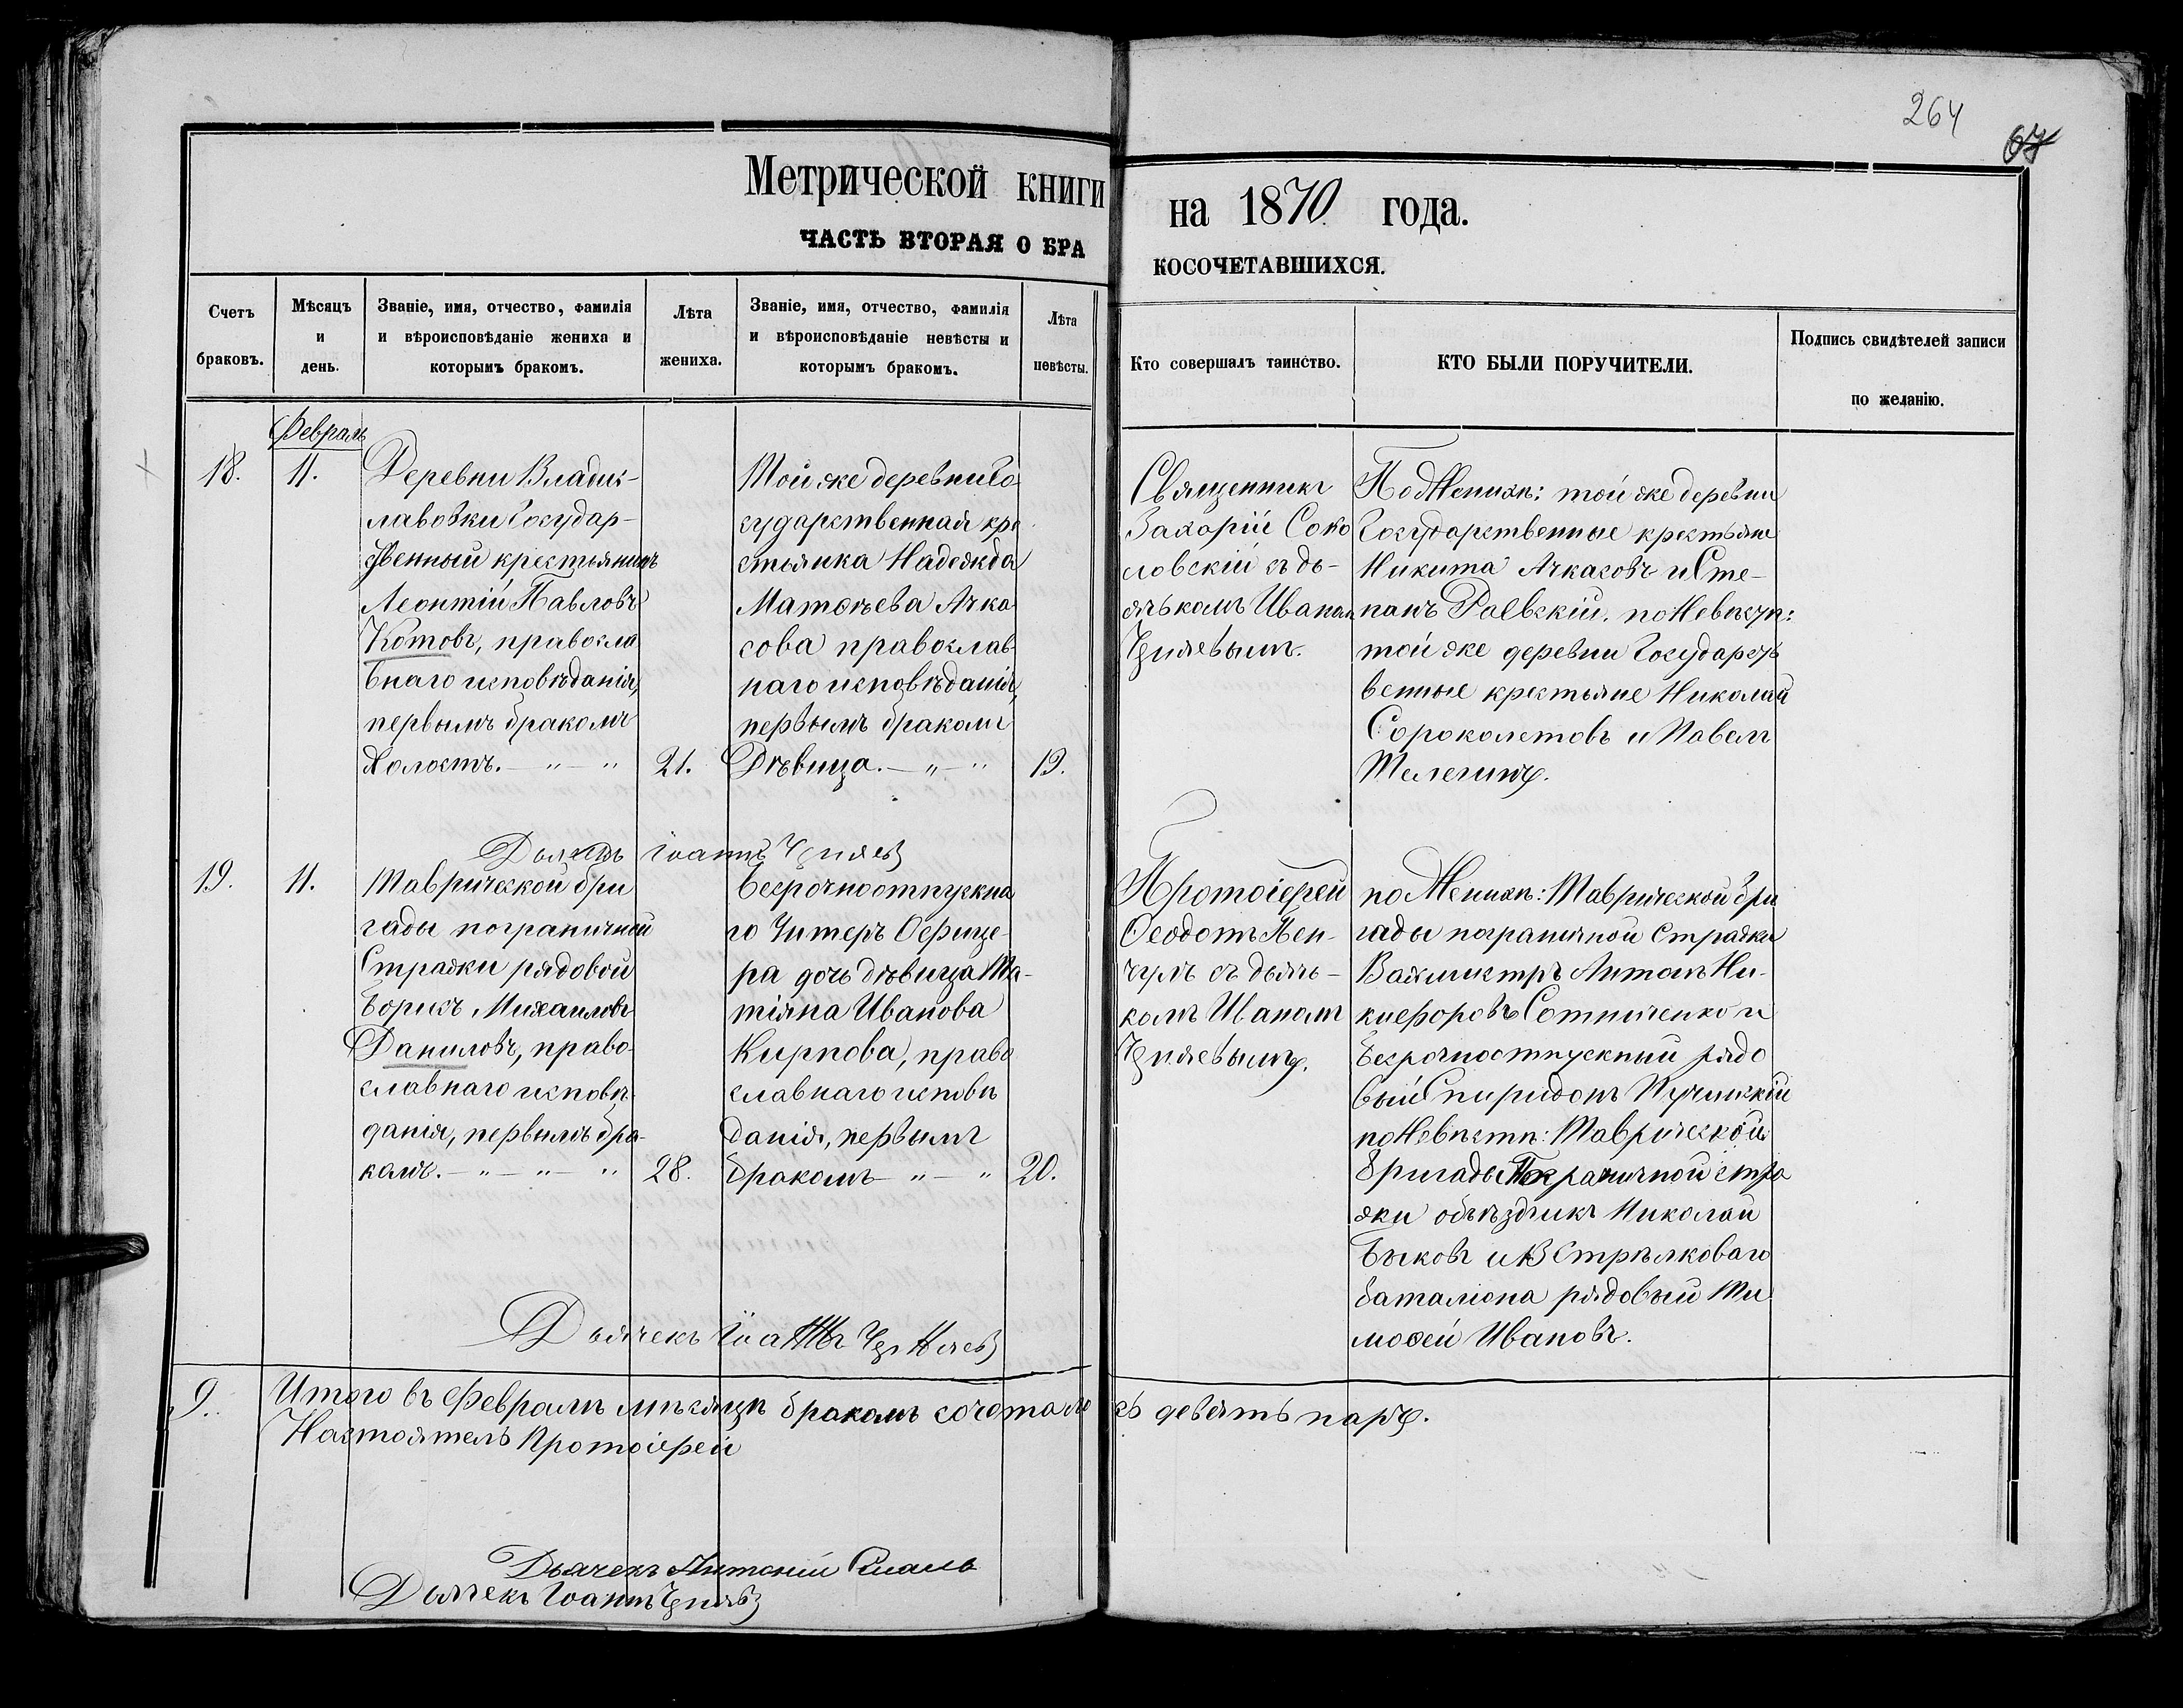 264
67
Метрической книги на 1870 года.
ЧАСТЬ ВТОРАЯ О БРАКОСОЧЕТАВШИХСЯ.
Счетъ браковъ.
Мѣсяцъ и день.
Званіе, имя, отчество, фамилія и вѣроисповѣданіе жениха и которымъ бракомъ.
Лѣта жениха.
Званіе, имя, отчество, фамилія и вѣроисповѣданіе невѣсты и которымъ бракомъ.
Лѣта невѣсты.
Кто совершалъ таинство.
КТО БЫЛИ ПОРУЧИТЕЛИ.
Подпись свидѣтелей записи по желанію.
Февраль
18.
11.
Деревни Владис-
лавовки Государ-
ственный крестьянинъ
Леонтій Павловъ
Котовъ, правосла
внаго исповѣданія,
первымъ бракомъ
Холостъ. — " — "
21.
Той же деревни Го
сударственная кре
стьянка Надежда
Матѳѣева Ачка
сова православ-
наго исповѣданія,
первымъ бракомъ
Дѣвица. — " — "
19.
Священникъ
Захарій Соко
ловскій съ дь-
ячькомъ Иваном
По Женихѣ: той же деревни
Государственные крестьяне
Никита Ачкасовъ и Сте-
панъ Раевскій. по Невѣсте:
той же деревни Государст
венные крестьяне Николай
Сороколетовъ и Павелъ
Телегинъ.
Дьячекъ Іоаннъ
19.
11.
Таврической бри
гады пограничной
Стражи рядовой
Борисъ Михаиловъ
Даниловъ, право-
славнаго исповѣ-
данія, первымъ бра-
комъ. — " — " — "
28.
безсрочноотпускна
го Унтеръ Офице-
ра дочь дѣвица Та-
тіяна Иванова
Кирпова, право
славнаго исповѣ
данія, первымъ
бракомъ — " — "
20.
Протоіерей
Ѳеодотъ
съ дьячь-
комъ Иваномъ
по Женихѣ: Таврической бри
гады пограничной Стражи
Вахмистръ Антонъ Ни-
кифоровъ Сотниченко и
безсрочноотпускный рядо
вый Спиридонъ
по Невѣстѣ: Таврической
бригады Пограничной стра
жи объѣздчикъ Николай
Быковъ и В Стрѣлковаго
баталіона рядовый Ти
моѳей Ивановъ.
Дьячекъ Іоаннъ
9.
Итого въ Февралѣ мѣсяцѣ бракомъ сочеталось девять паръ.
Настоятель Протоіерей
Дьячекъ Антоній
Дьячекъ Іоаннъ